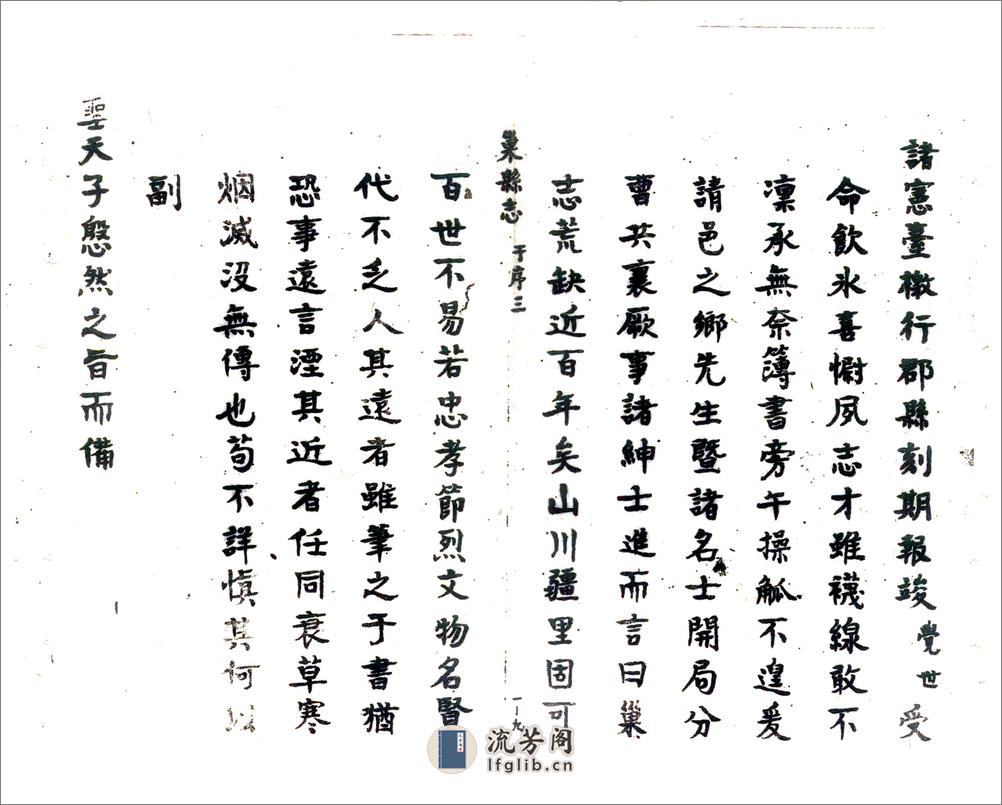 諸憲臺檄行郡縣刻期報竣覺世受
命飲氷喜懰夙志才雖襪線敢不
凜承無奈簿書旁午操觚不遑爰
請邑之鄉先生暨諸名士開局分
曹共襄厥事諸紳士進而言曰巢
志荒缺近百年矣山川疆里固可
巢縣志 于序三 一九
百世不易若忠孝節烈文物名賢
代不乏人其遠者雖筆之于書猶
恐事遠言湮其近者任同衰草寒
烟滅沒無傳也苟不詳慎其何以
副
聖天子慇然之旨而備
流芳阁
lfglib.cn